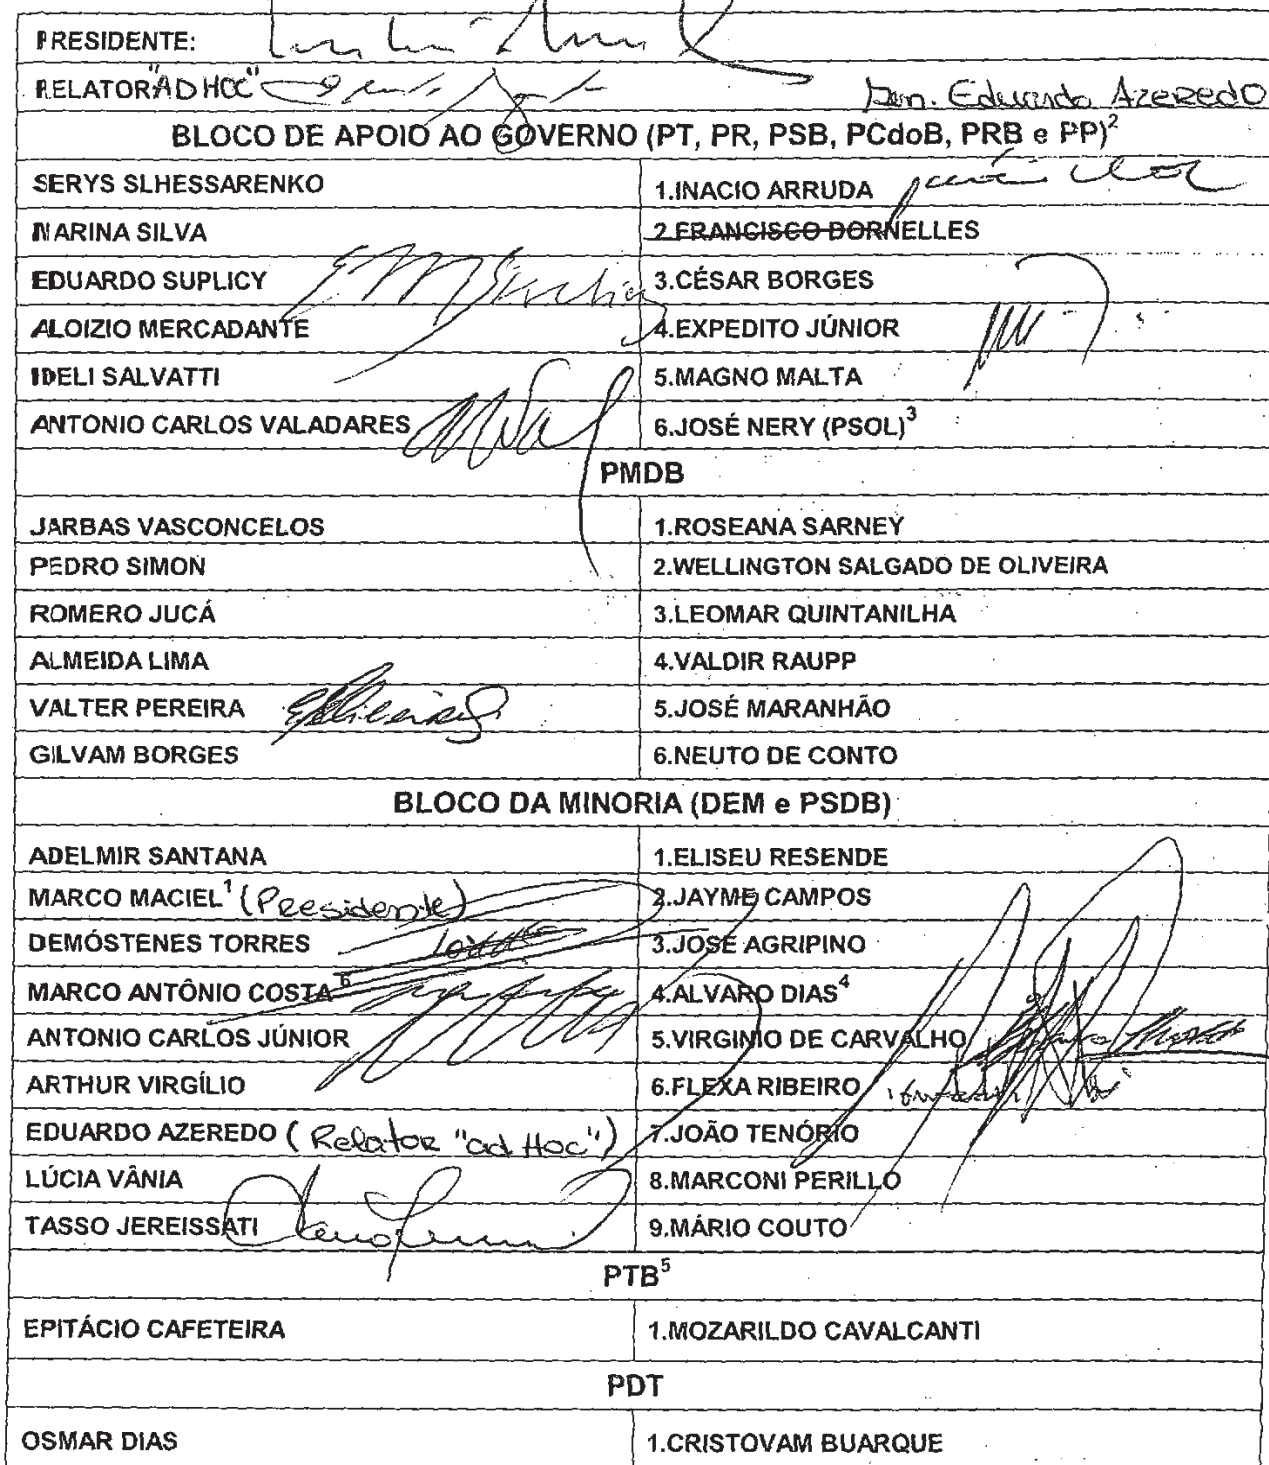 PRESIDENTE:
RELATOR "AD HOC" Sen. Eduardo Azeredo
BLOCO DE APOIO AO GOVERNO (PT, PR, PSB, PCdoB, PRB e PP)²
SERYS SLHESSARENKO 1.INACIO ARRUDA
MARINA SILVA 2.FRANCISCO DORNELLES
EDUARDO SUPLICY 3.CÉSAR BORGES
ALOIZIO MERCADANTE 4.EXPEDITO JÚNIOR
IDELI SALVATTI 5.MAGNO MALTA
ANTONIO CARLOS VALADARES 6.JOSÉ NERY (PSOL)³
PMDB
JARBAS VASCONCELOS 1.ROSEANA SARNEY
PEDRO SIMON 2.WELLINGTON SALGADO DE OLIVEIRA
ROMERO JUCÁ 3.LEOMAR QUINTANILHA
ALMEIDA LIMA 4.VALDIR RAUPP
VALTER PEREIRA 5.JOSÉ MARANHÃO
GILVAM BORGES 6.NEUTO DE CONTO
BLOCO DA MINORIA (DEM e PSDB)
ADELMIR SANTANA 1.ELISEU RESENDE
MARCO MACIEL¹ (Presidente) 2.JAYME CAMPOS
DEMÓSTENES TORRES 3.JOSÉ AGRIPINO
MARCO ANTÔNIO COSTA⁶ 4.ALVARO DIAS⁴
ANTONIO CARLOS JÚNIOR 5.VIRGINIO DE CARVALHO
ARTHUR VIRGÍLIO 6.FLEXA RIBEIRO
EDUARDO AZEREDO (Relator "ad Hoc") 7.JOÃO TENÓRIO
LÚCIA VÂNIA 8.MARCONI PERILLO
TASSO JEREISSATI 9.MÁRIO COUTO
PTB⁵
EPITÁCIO CAFETEIRA 1.MOZARILDO CAVALCANTI
PDT
OSMAR DIAS 1.CRISTOVAM BUARQUE